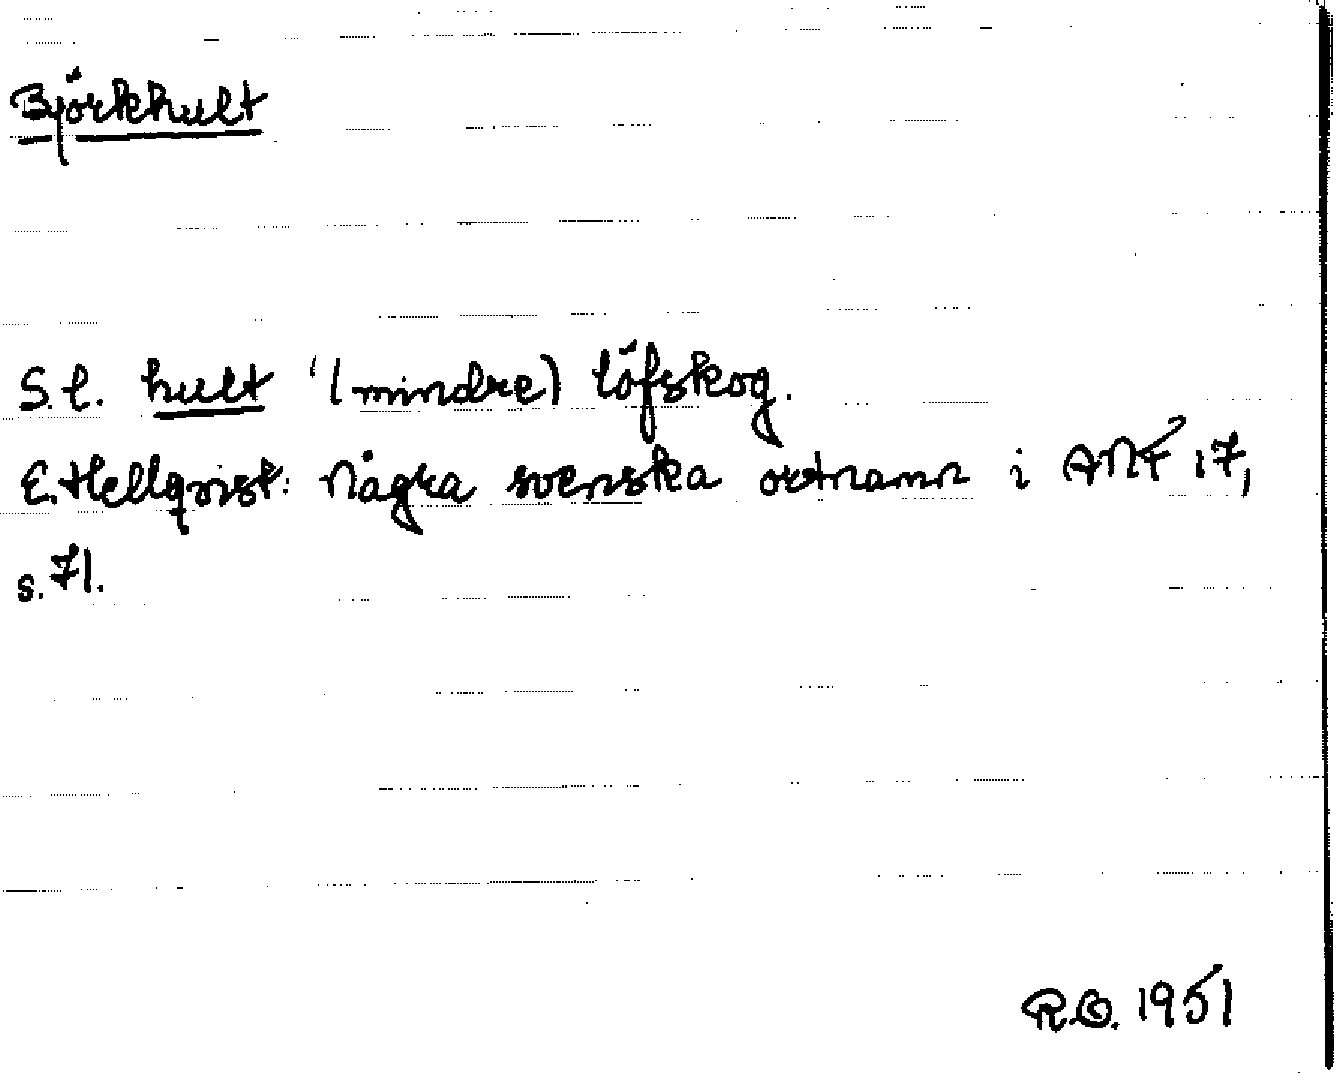 Björkhult
S.l. hult '(mindre) löfskog.
E. Hellqvist: Några svenska ortnamn i ANF 17,
s. 71.
R.O. 1951